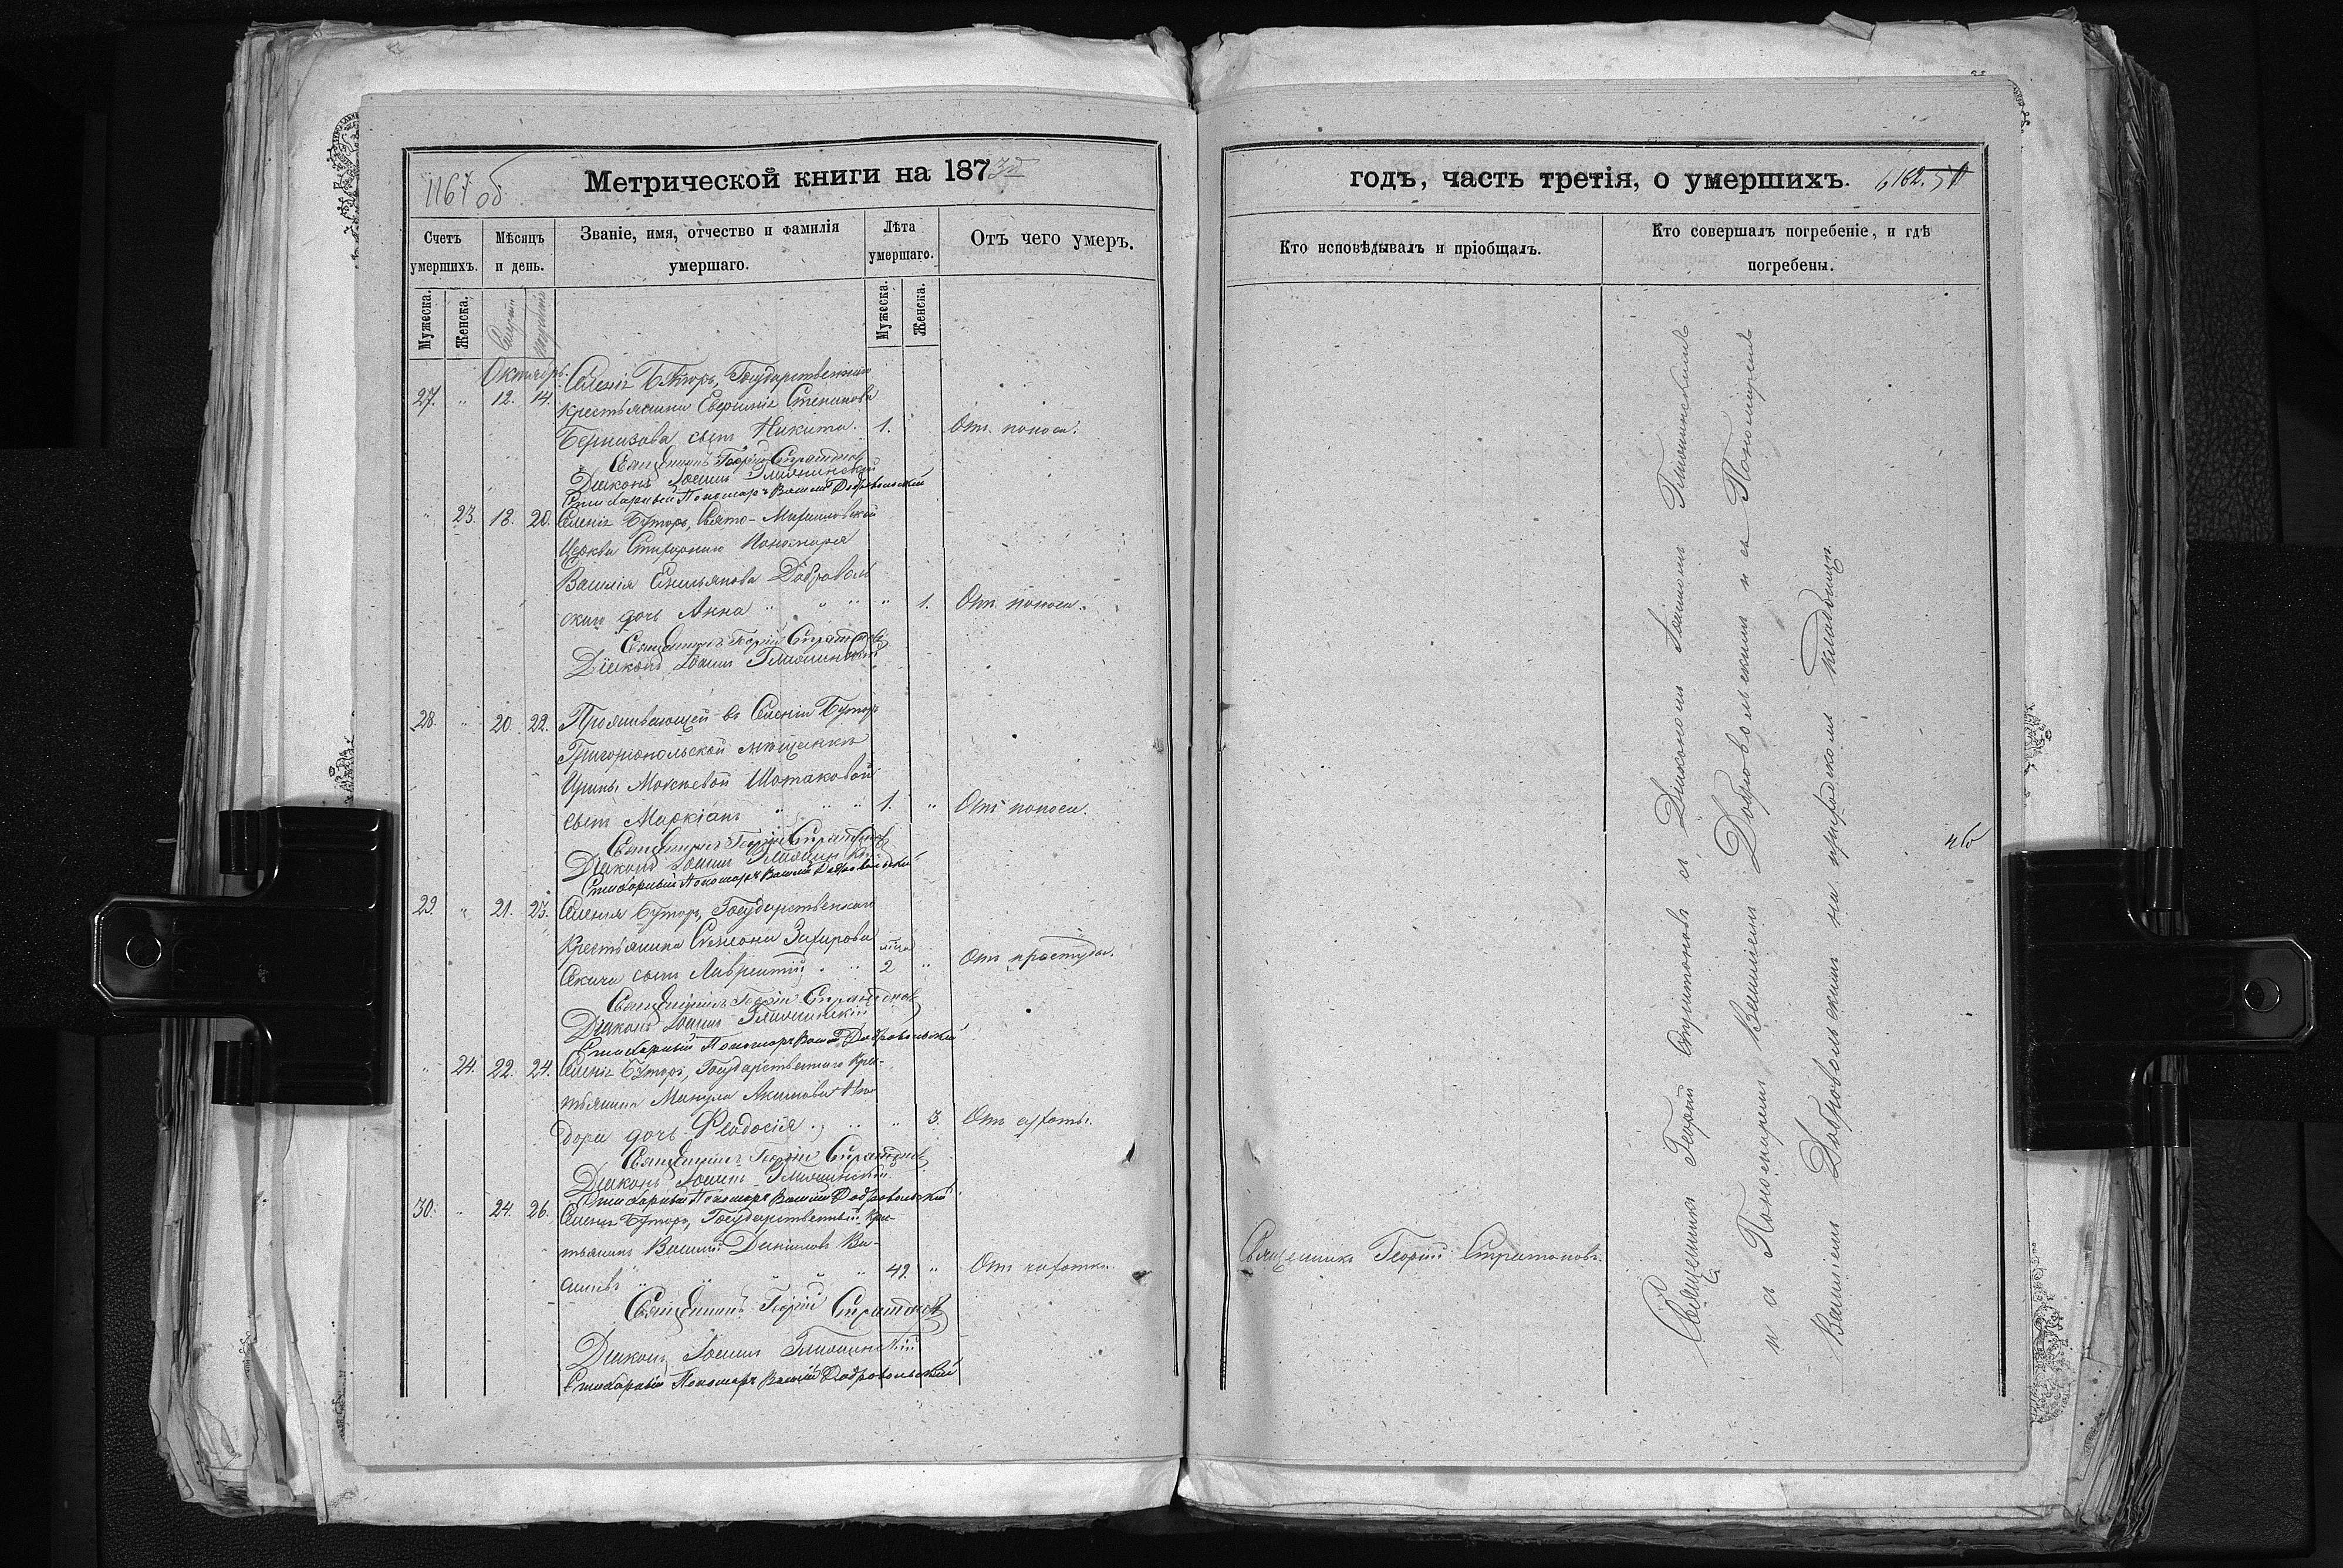 1167 об
Метрической книги на 1873й
Счетъ умершихъ.
Мѣсяцъ и день.
Званіе, имя, отчество и фамилія умершаго.
Лѣта умершаго.
Отъ чего умеръ.
Мужеска.
Женска.
Мужеска.
Женска.
Октябрь.
Селенія Буторъ, Государственнаго
27. " 12. 14. крестьянина Евфимія Степанова
сынъ Никита. 1. Отъ поноса.
Священникъ Георгій Стратоновъ
Діаконъ Іоаннъ
Стихарный Пономарь Василій Добровольскій
" 23. 18. 20. Селенія Буторъ, Свято-Михайловской
Церкви Стихарнаго Пономаря
Василія Емельянова Доброволь
скаго дочь Анна " " " " 1. Отъ поноса.
Священникъ Георгій Стратоновъ
Діаконъ Іоаннъ
28. " 20. 22. Проживающей въ Селеніи Буторъ
Григоріопольской мѣщанки
Ирины Мокіевой
сынъ Маркіанъ " " " 1. " Отъ поноса.
Священникъ Георгій Стратоновъ
Діаконъ Іоаннъ
Стихарный Пономарь Василій Добровольскій
29. " 21. 23. Селенія Буторъ, Государственнаго
крестьянина Симеона Захарова
сынъ Лаврентій " " 2 " Отъ простуды.
Священникъ Георгій Стратоновъ
Діаконъ Іоаннъ
Стихарный Пономарь Василій Добровольскій
" 24. 22. 24. Селенія Буторъ, Государственнаго Крес-
тьянина
дочь Феодосія " " " 3. Отъ сухоты.
Священникъ Георгій Стратоновъ
Діаконъ Іоаннъ
Стихарный Пономарь Василій Добровольскій
30. " 24. 26. Селенія Буторъ, Государственный Крес-
тьянинъ Василій Даниловъ
" " " " 49. " Отъ чахотки.
Священникъ Георгій Стратоновъ
Діаконъ Іоаннъ
Стихарный Пономарь Василій Добровольскій
годъ, часть третія, о умершихъ.
Кто исповѣдывалъ и пріобщалъ.
Кто совершалъ погребеніе, и гдѣ погребены.
Священникъ Георгій Стратоновъ.
Священникъ Георгій Стратоновъ съ Діакономъ Іоанномъ
и съ Пономаремъ Василіемъ Добровольскимъ и съ Пономаремъ
Василіемъ Добровольскимъ на приходскомъ кладбищѣ.